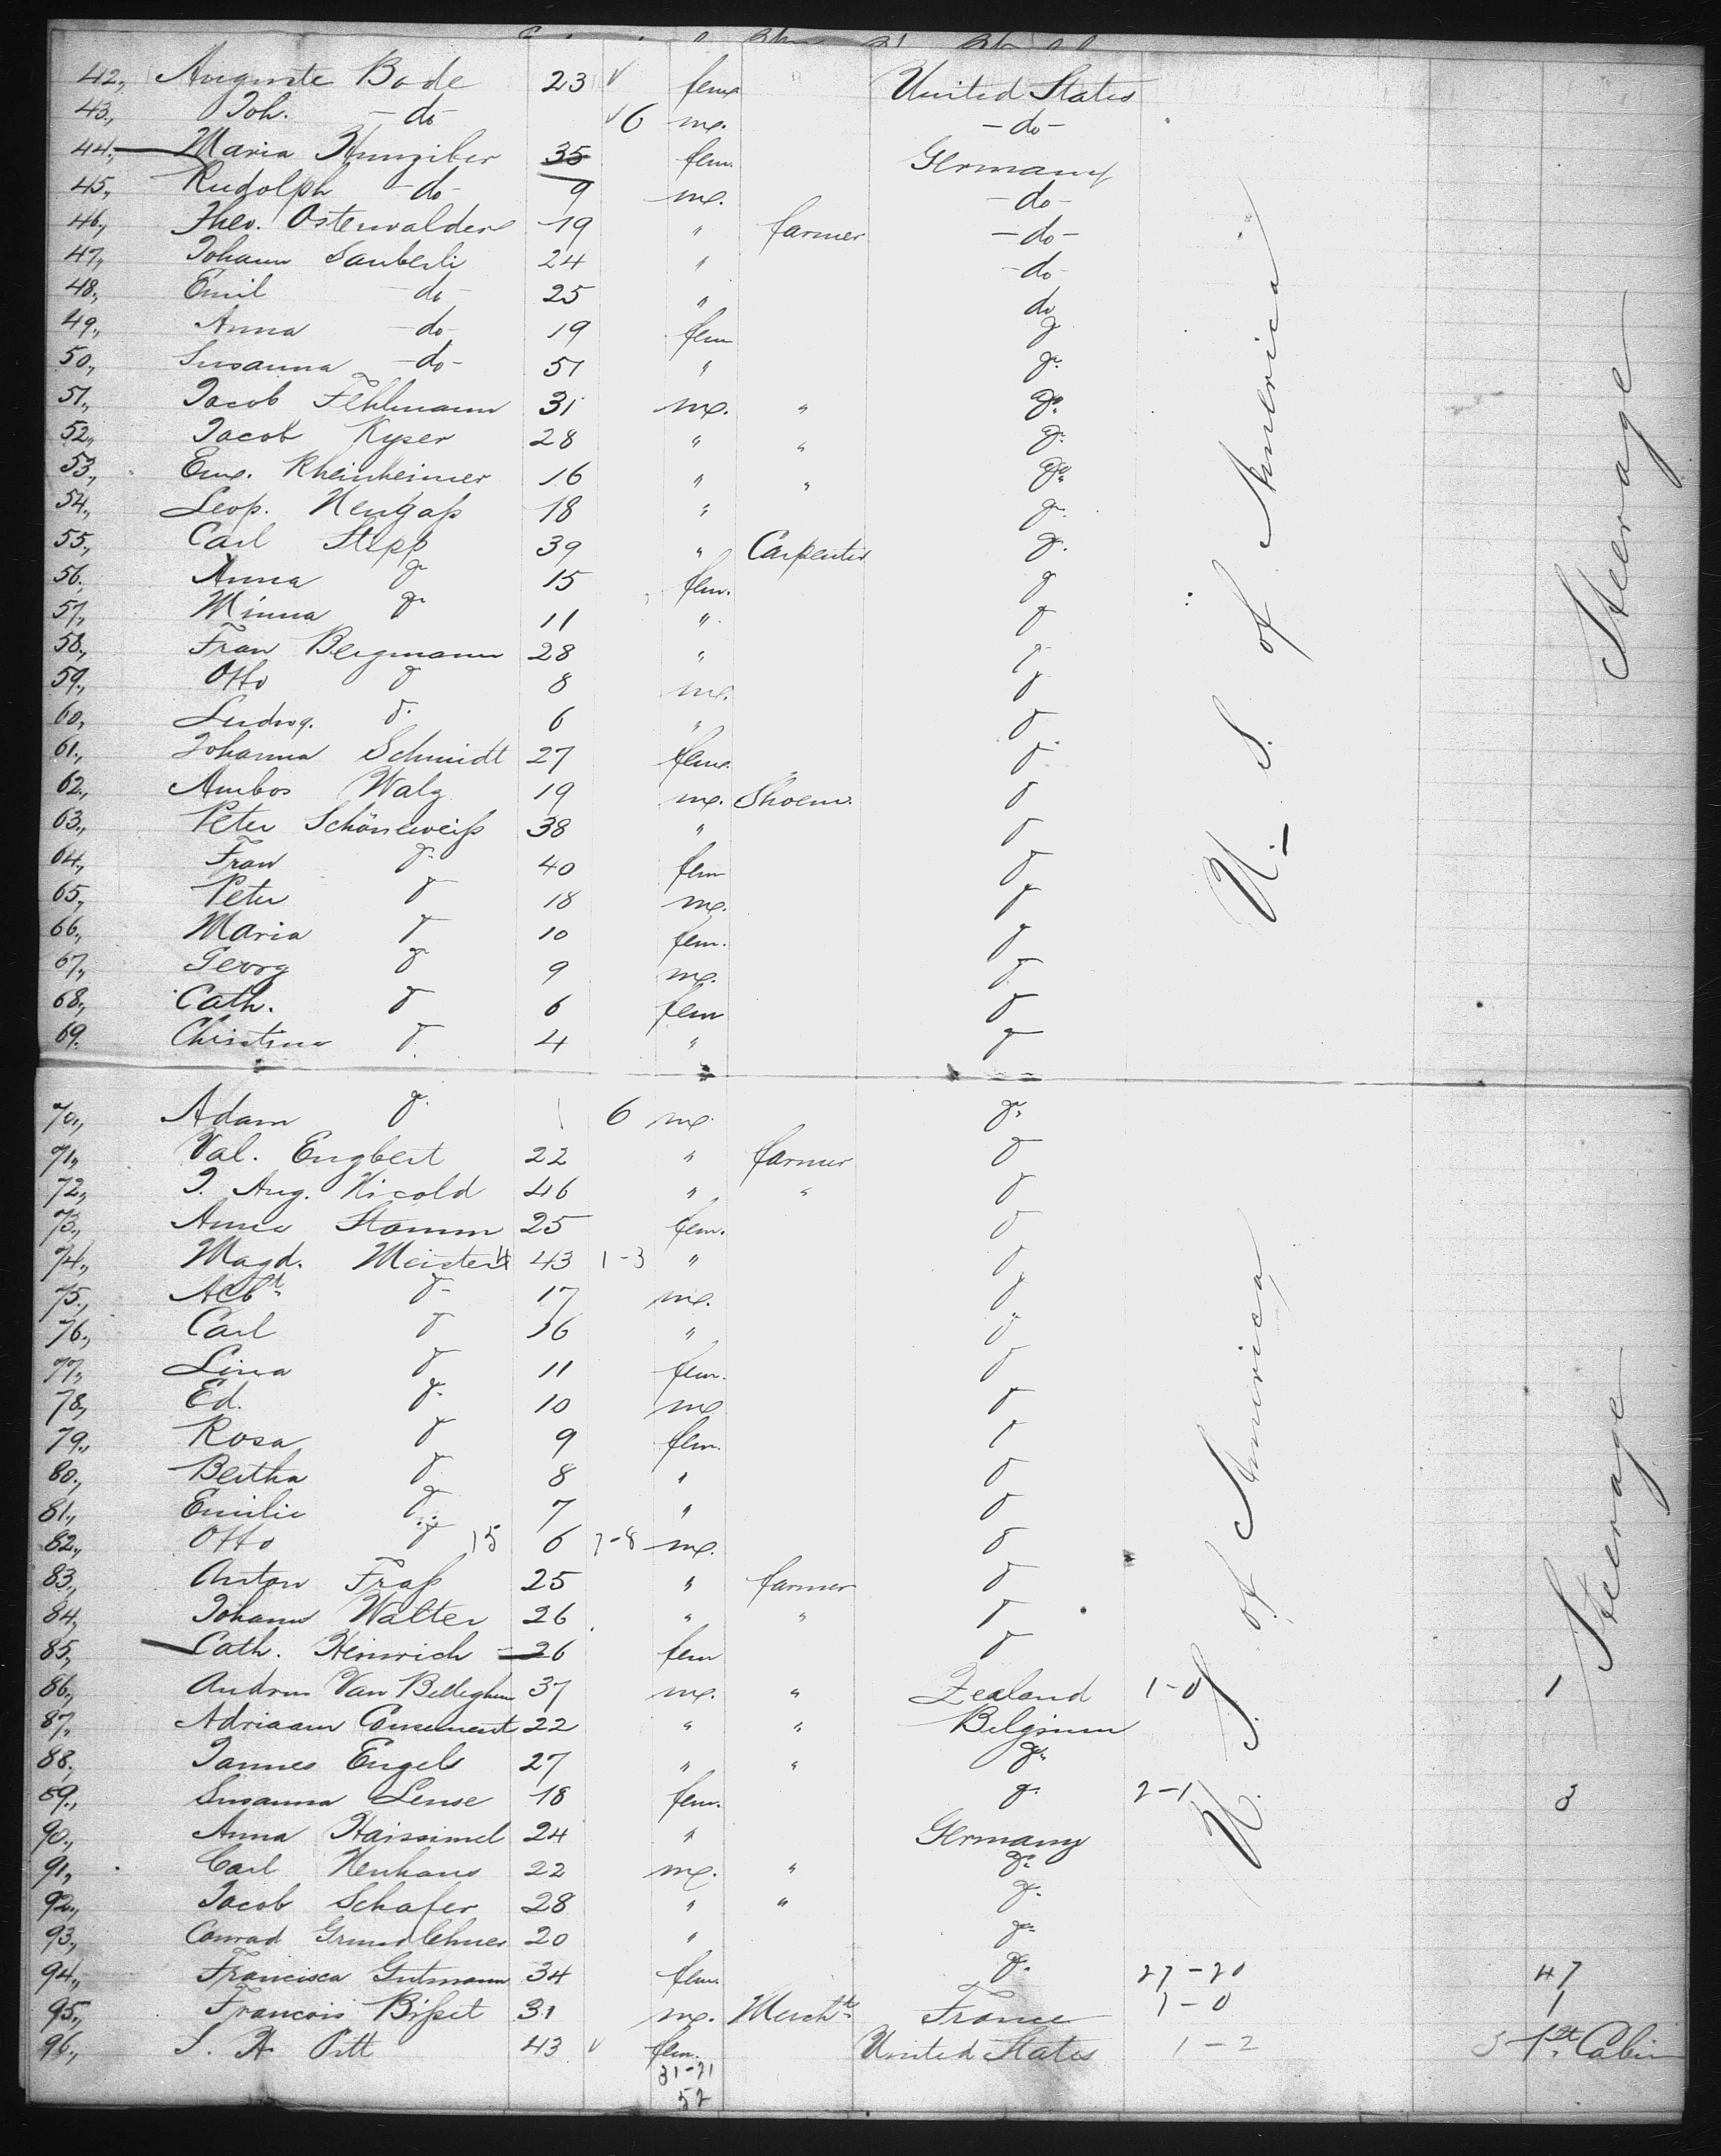 42., Auguste Bode 23 fem United States
43., Joh. - do - 6 me. - do -
44., Maria Hunziker 35 fem. Germany
45., Rudolph - do - 9 me. - do -
46., Theo. Osterwalder 19 " farmer - do -
47., Johann Sauberli 24 " - do -
48., Emil - do - 25 " do
49., Anna - do - 19 fem do
50., Susanna - do - 51 " do
51., Jacob Fehlmann 31 me. " do
52., Jacob Kyser 28 " " do
53., Em. Rheinheimer 16 " " do
54., Leop. Neugaß 18 " do
55., Carl Stepp 39 " Carpenter do
56. Anna do 15 fem. do
57., Minna do 11 " do
58., Frau Bergmann 28 " do
59., Otto do 8 me. do
60., Ludwg. do 6 " do
61., Johanna Schmidt 27 fem. do
62., Ambos Walz 19 me. Shoem. do
63., Peter Schöneweiß 38 " do
64., Frau do 40 fem do
65., Peter do 18 me. do
66., Maria do 10 fem. do
67., Georg do 9 me. do
68., Cath. do 6 fem do
69. Christina do 4 " do
U. S. of America
Steerage
70., Adam do 6 me. do
71., Val. Engbert 22 " farmer do
72., J. Aug. Nicold 46 " " do
73., Anna Stamm 25 fem. do
74., Magd. Meister 43 1-3 " do
75., Albt. do 17 me. do
76., Carl do 16 " do
77., Lina do 11 fem. do
78., Ed. do 10 me do
79., Rosa do 9 fem. do
80., Bertha do 8 " do
81., Emilie do 7 " do
82., Otto do 15 6 7-8 me. do
83., Anton Fraß 25 " farmer do
84., Johann Walter 26 " " do
85., Cath. Heinrich 26 fem do
86., Van Belleghem 37 me. " Zealand 1-0 1
87., Adriaan 22 " " Belgium
88., Jannes Engels 27 " " do
89., Susanna Lense 18 fem. do 2-1 3
90., Anna Haissimel 24 " Germany
91., Carl Neuhaus 22 me. " do
92., Jacob Schafer 28 " " do
93., Conrad Grundlehner 20 " do
94., Francisca Gutmann 34 fem. do 27-20 47
95., Francois Bißet 31 me. Mercht. France 1-0 1
96., S. H. Pitt 43 fem. United States 1-2 3 1st. Cabin
U. S. of America
Steerage
31-21
52